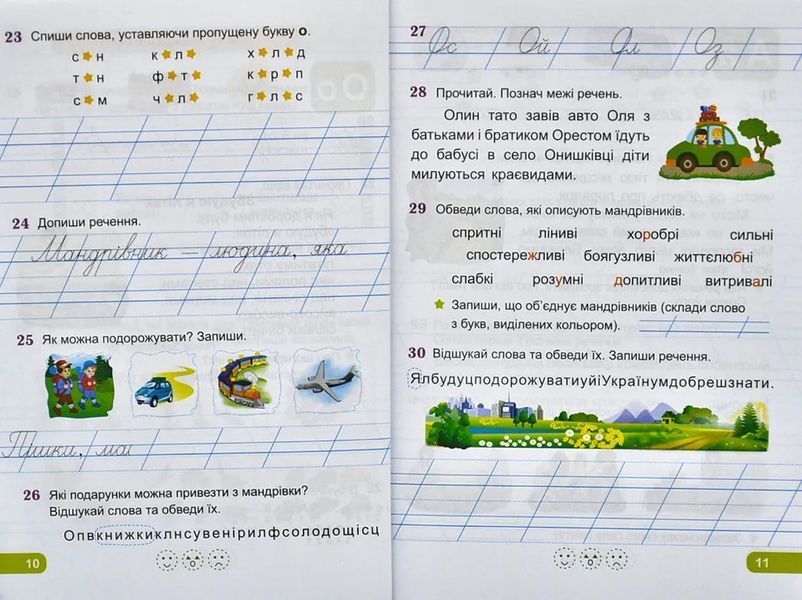 23 Спиши слова, уставляючи пропущену букву о.
с★н к★л★ х★л★д
т★н ф★т★ к★р★п
с★м ч★л★ г★л★с
24 Допиши речення.
Мандрівник — людина, яка
25 Як можна подорожувати? Запиши.
Пішки, маш
26 Які подарунки можна привезти з мандрівки?
Відшукай слова та обведи їх.
Опвкнижкиклнсувенірилфсолодощісц
10
27 Ос Ой Ол Оз
28 Прочитай. Познач межі речень.
Олин тато завів авто Оля з
батьками і братиком Орестом їдуть
до бабусі в село Онишківці діти
милуються краєвидами.
29 Обведи слова, які описують мандрівників.
спритні ліниві хоробрі сильні
спостережливі боягузливі життєлюбні
слабкі розумні допитливі витривалі
★ Запиши, що об'єднує мандрівників (склади слово
з букв, виділених кольором).
30 Відшукай слова та обведи їх. Запиши речення.
ЯлбудуцподорожуватиуйіУкраїнумдобрешзнати.
11